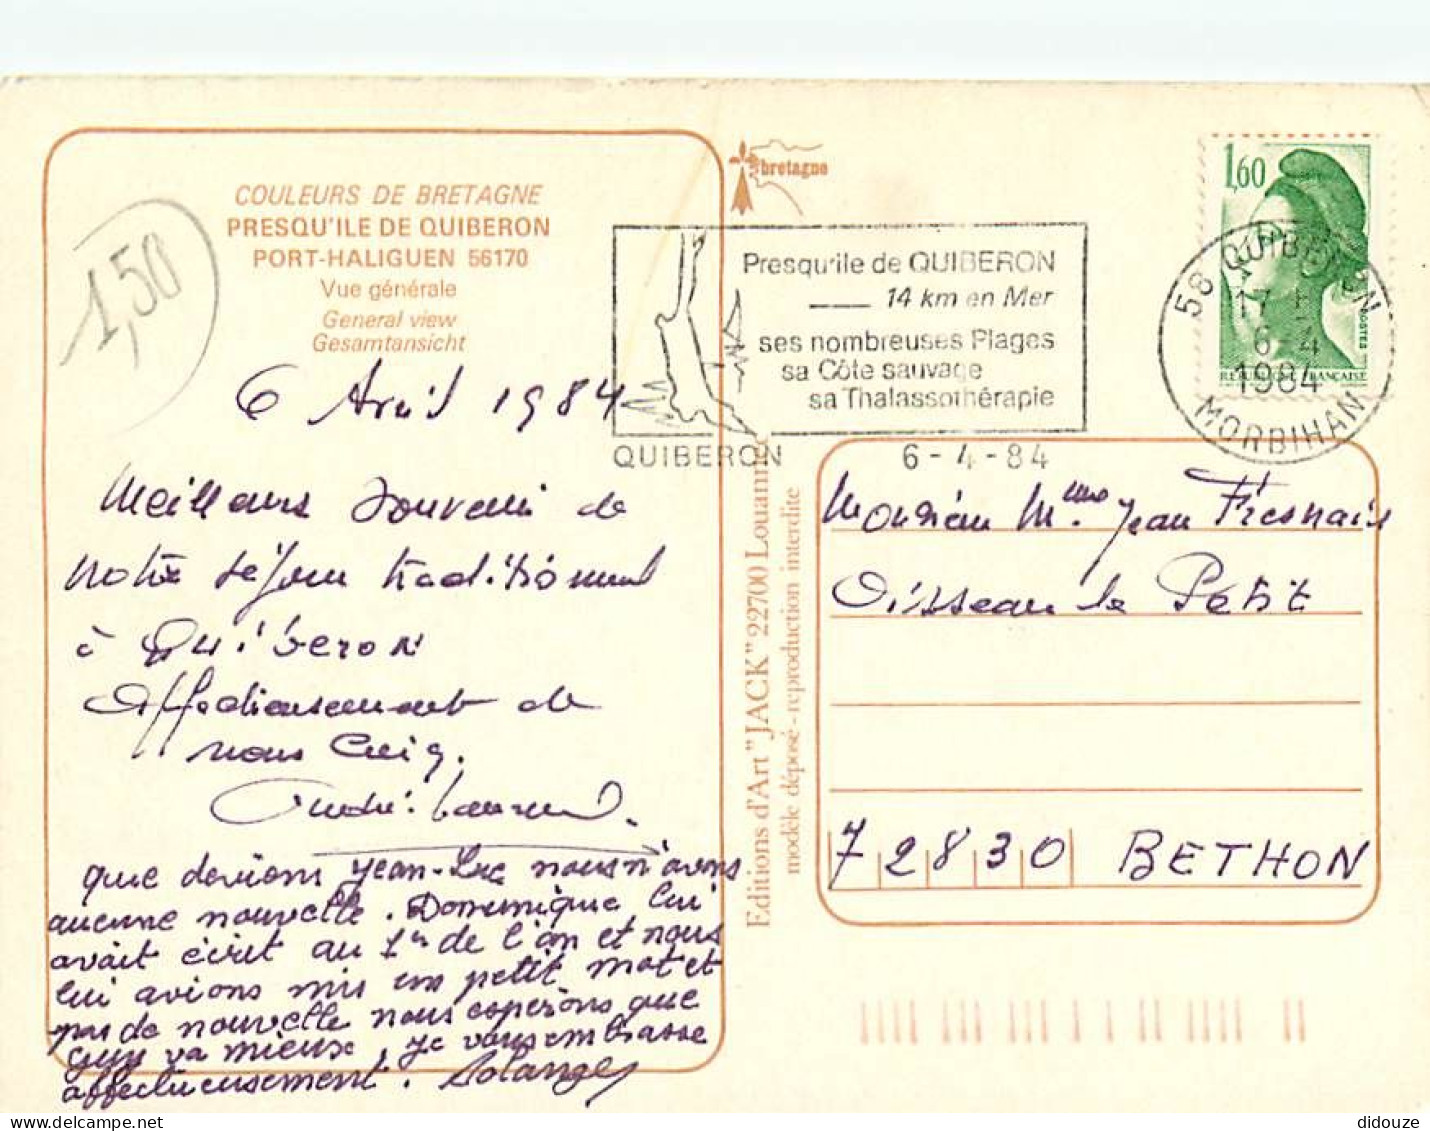 COULEURS DE BRETAGNE
PRESQU'ILE DE QUIBERON
PORT-HALIGUEN 56170
Vue générale
General view
Gesamtansicht
1,50
6 Avril 1984
Meilleurs Souvenir de
notre séjour traditionnel
à Quiberon
Affectieusement de
nous Cinq.
André
que deviens Jean-Luc nous n'avons
aucune nouvelle. Dominique lui
avait écrit au 1er de l'an et nous
lui avions mis un petit mot et
pas de nouvelle nous esperons que
Guy va mieux, je vous embrasse
affectueusement. Solange
bretagne
Presqu'ile de QUIBERON
14 km en Mer
ses nombreuses Plages
sa Côte sauvage
sa Thalassothérapie
QUIBERON 6-4-84
1,60
POSTES
RE FRANÇAISE
QUIBERON
17 H
6-4
1984
MORBIHAN
Editions d'Art "JACK" 22700 Louannec
modèle déposé - reproduction interdite
Monsieur Mme Jean Fresnais
Oisseau le Petit
72830 BETHON
didouze